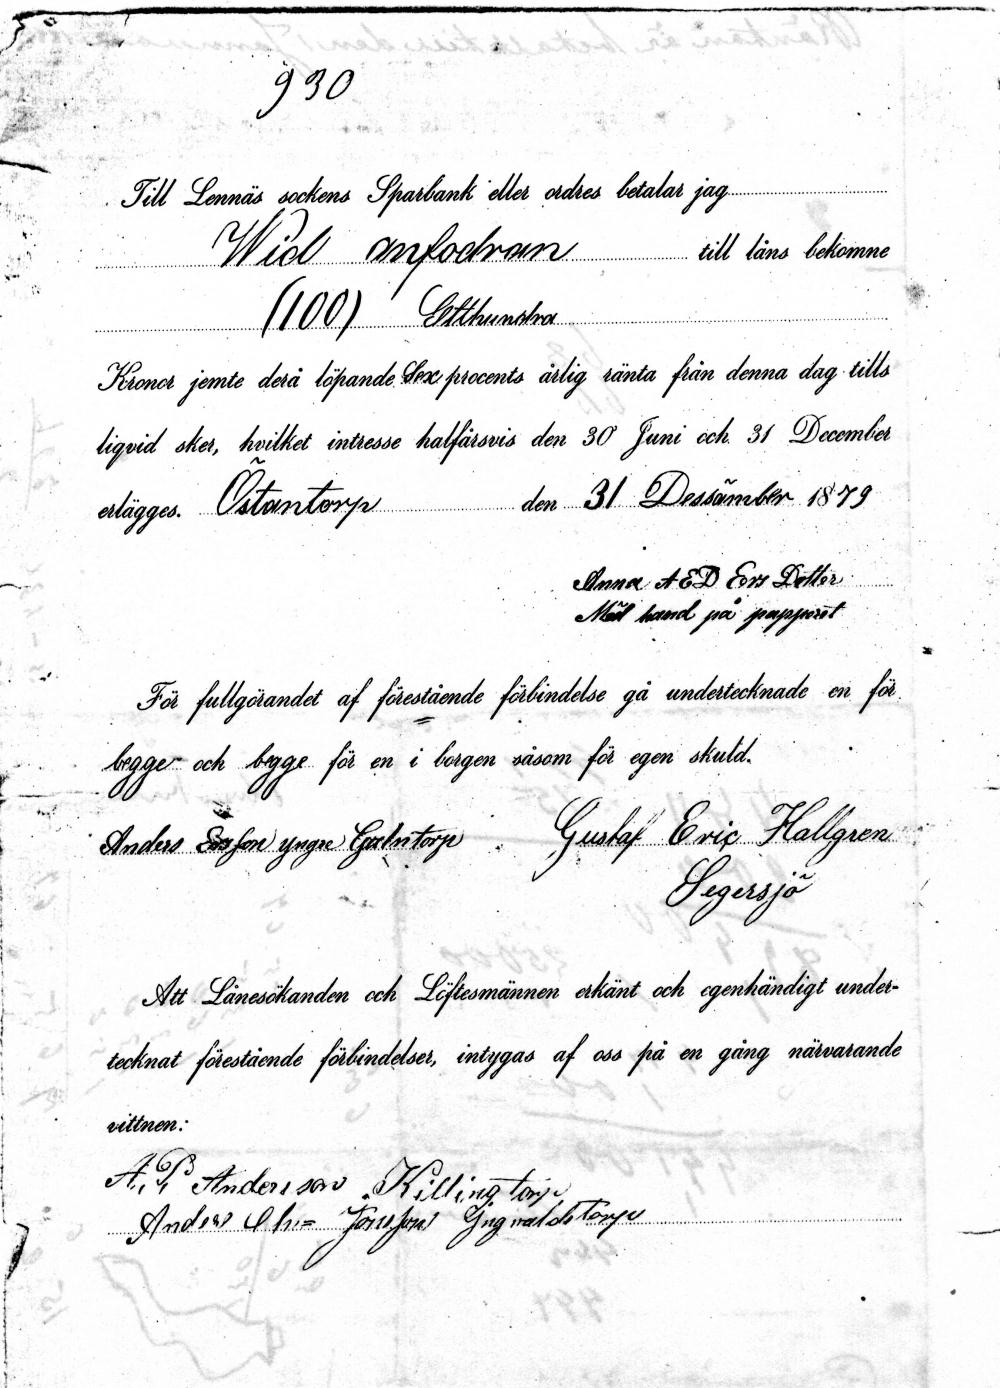 930
Till Lennäs sockens Sparbank eller ordres betalar jag
Wid anfodran till låns bekomne
(100) Etthundra
Kronor jemte derå löpande Sex procents årlig ränta från denna dag tills
liqvid sker, hvilket intresse halfårsvis den 30 Juni och 31 December
erlägges. Östantorp den 31 Dessämber 1879
Anna AED Ers Dotter
Med hand på papperet
För fullgörandet af förestående förbindelse gå undertecknade en för
begge och begge för en i borgen såsom för egen skuld.
Anders Ersson yngre Galntorp Gustaf Eric Hallgren
Segersjö
Att Lånesökanden och Löftesmännen erkänt och egenhändigt under-
tecknat förestående förbindelser, intygas af oss på en gång närvarande
vittnen:
A. P. Andersson Killingtorp
Anders Jonsson Yngvaldstorp